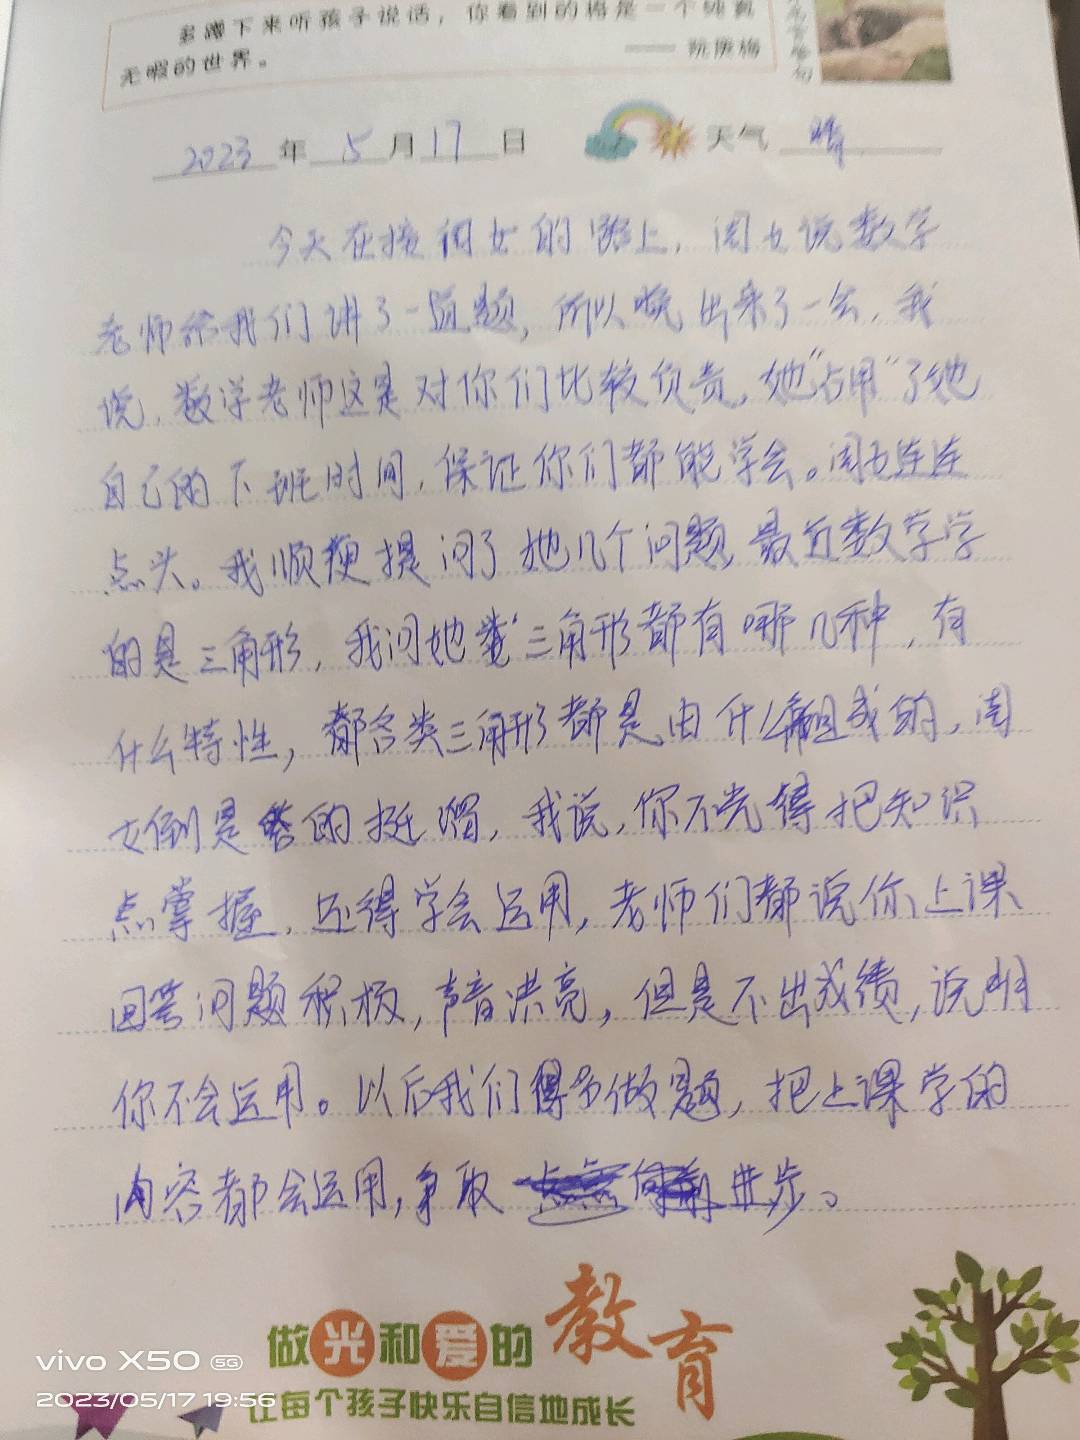 多蹲下来听孩子说话，你看到的将是一个纯真
无暇的世界。
—— 阮庚梅
2023年5月17日 天气 晴
今天在接闺女的路上，闺女说数学
老师给我们讲了一道题，所以晚出来了一会，我
说，数学老师这是对你们比较负责，她“占用”了她
自己的下班时间，保证你们都能学会。闺女连连
点头。我顺便提问了她几个问题，最近数学学
的是三角形，我问她三角形都有哪几种，有
什么特性，都各类三角形都是由什么组成的，闺
女倒是答的挺溜，我说，你不光得把知识
点掌握，还得学会运用，老师们都说你上课
回答问题积极，声音洪亮，但是不出成绩，说明
你不会运用。以后我们得多做题，把上课学的
内容都会运用，争取进步。
做光和爱的教育
让每个孩子快乐自信地成长
vivo X50 5G
2023/05/17 19:56